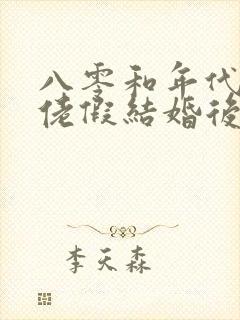 八零和年代
佬假結婚後
李天森